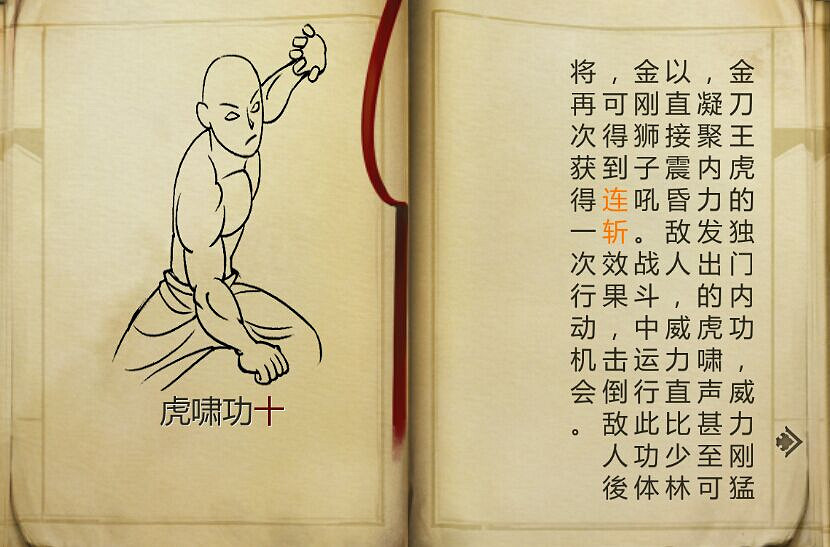 虎啸功十
金刀王虎的独门内功，威力刚猛
，凝聚内力发出的虎啸声甚至可
以直接震昏敌人，威力直比少林
金刚狮子吼。战斗中运行此功体
，可得到连斩效果，击倒敌人後
将再次获得一次行动机会。